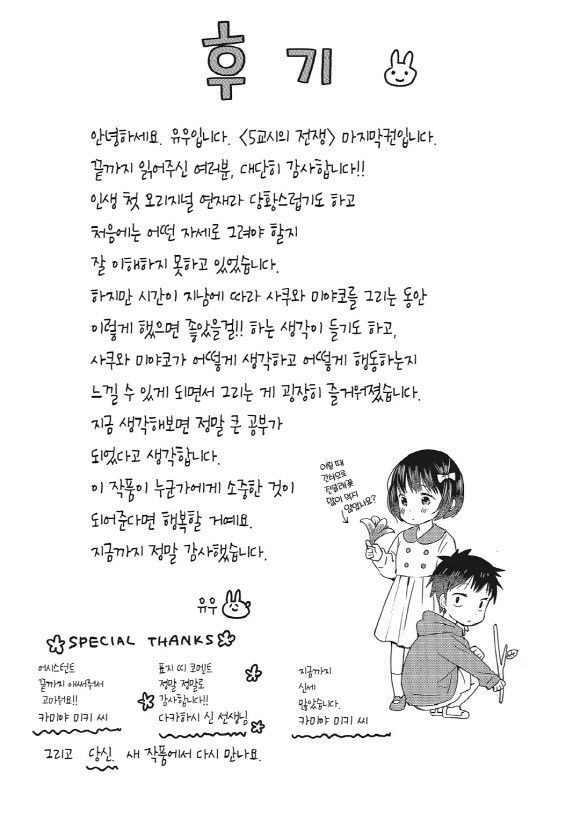 후기
안녕하세요. 유우입니다. <5교시의 전쟁> 마지막권입니다.
끝까지 읽어주신 여러분, 대단히 감사합니다!!
인생 첫 오리지널 연재라 당황스럽기도 하고
처음에는 어떤 자세로 그려야 할지
잘 이해하지 못하고 있었습니다.
하지만 시간이 지남에 따라 사쿠와 미야코를 그리는 동안
이렇게 했으면 좋았을걸!! 하는 생각이 들기도 하고,
사쿠와 미야코가 어떻게 생각하고 어떻게 행동하는지
느낄 수 있게 되면서 그리는 게 굉장히 즐거워졌습니다.
지금 생각해보면 정말 큰 공부가
되었다고 생각합니다.
이 작품이 누군가에게 소중한 것이
되어준다면 행복할 거예요.
지금까지 정말 감사했습니다.
유우
어릴 때
간식으로
진달래꽃
많이 먹지
않았나요?
SPECIAL THANKS
어시스턴트
끝까지 애써주셔
고마워요!!
카미야 미키 씨
표지 띠 코멘트
정말 정말로
감사합니다!!
다카하시 신 선생님
지금까지
신세
많았습니다.
카미야 미키 씨
그리고 당신. 새 작품에서 다시 만나요.